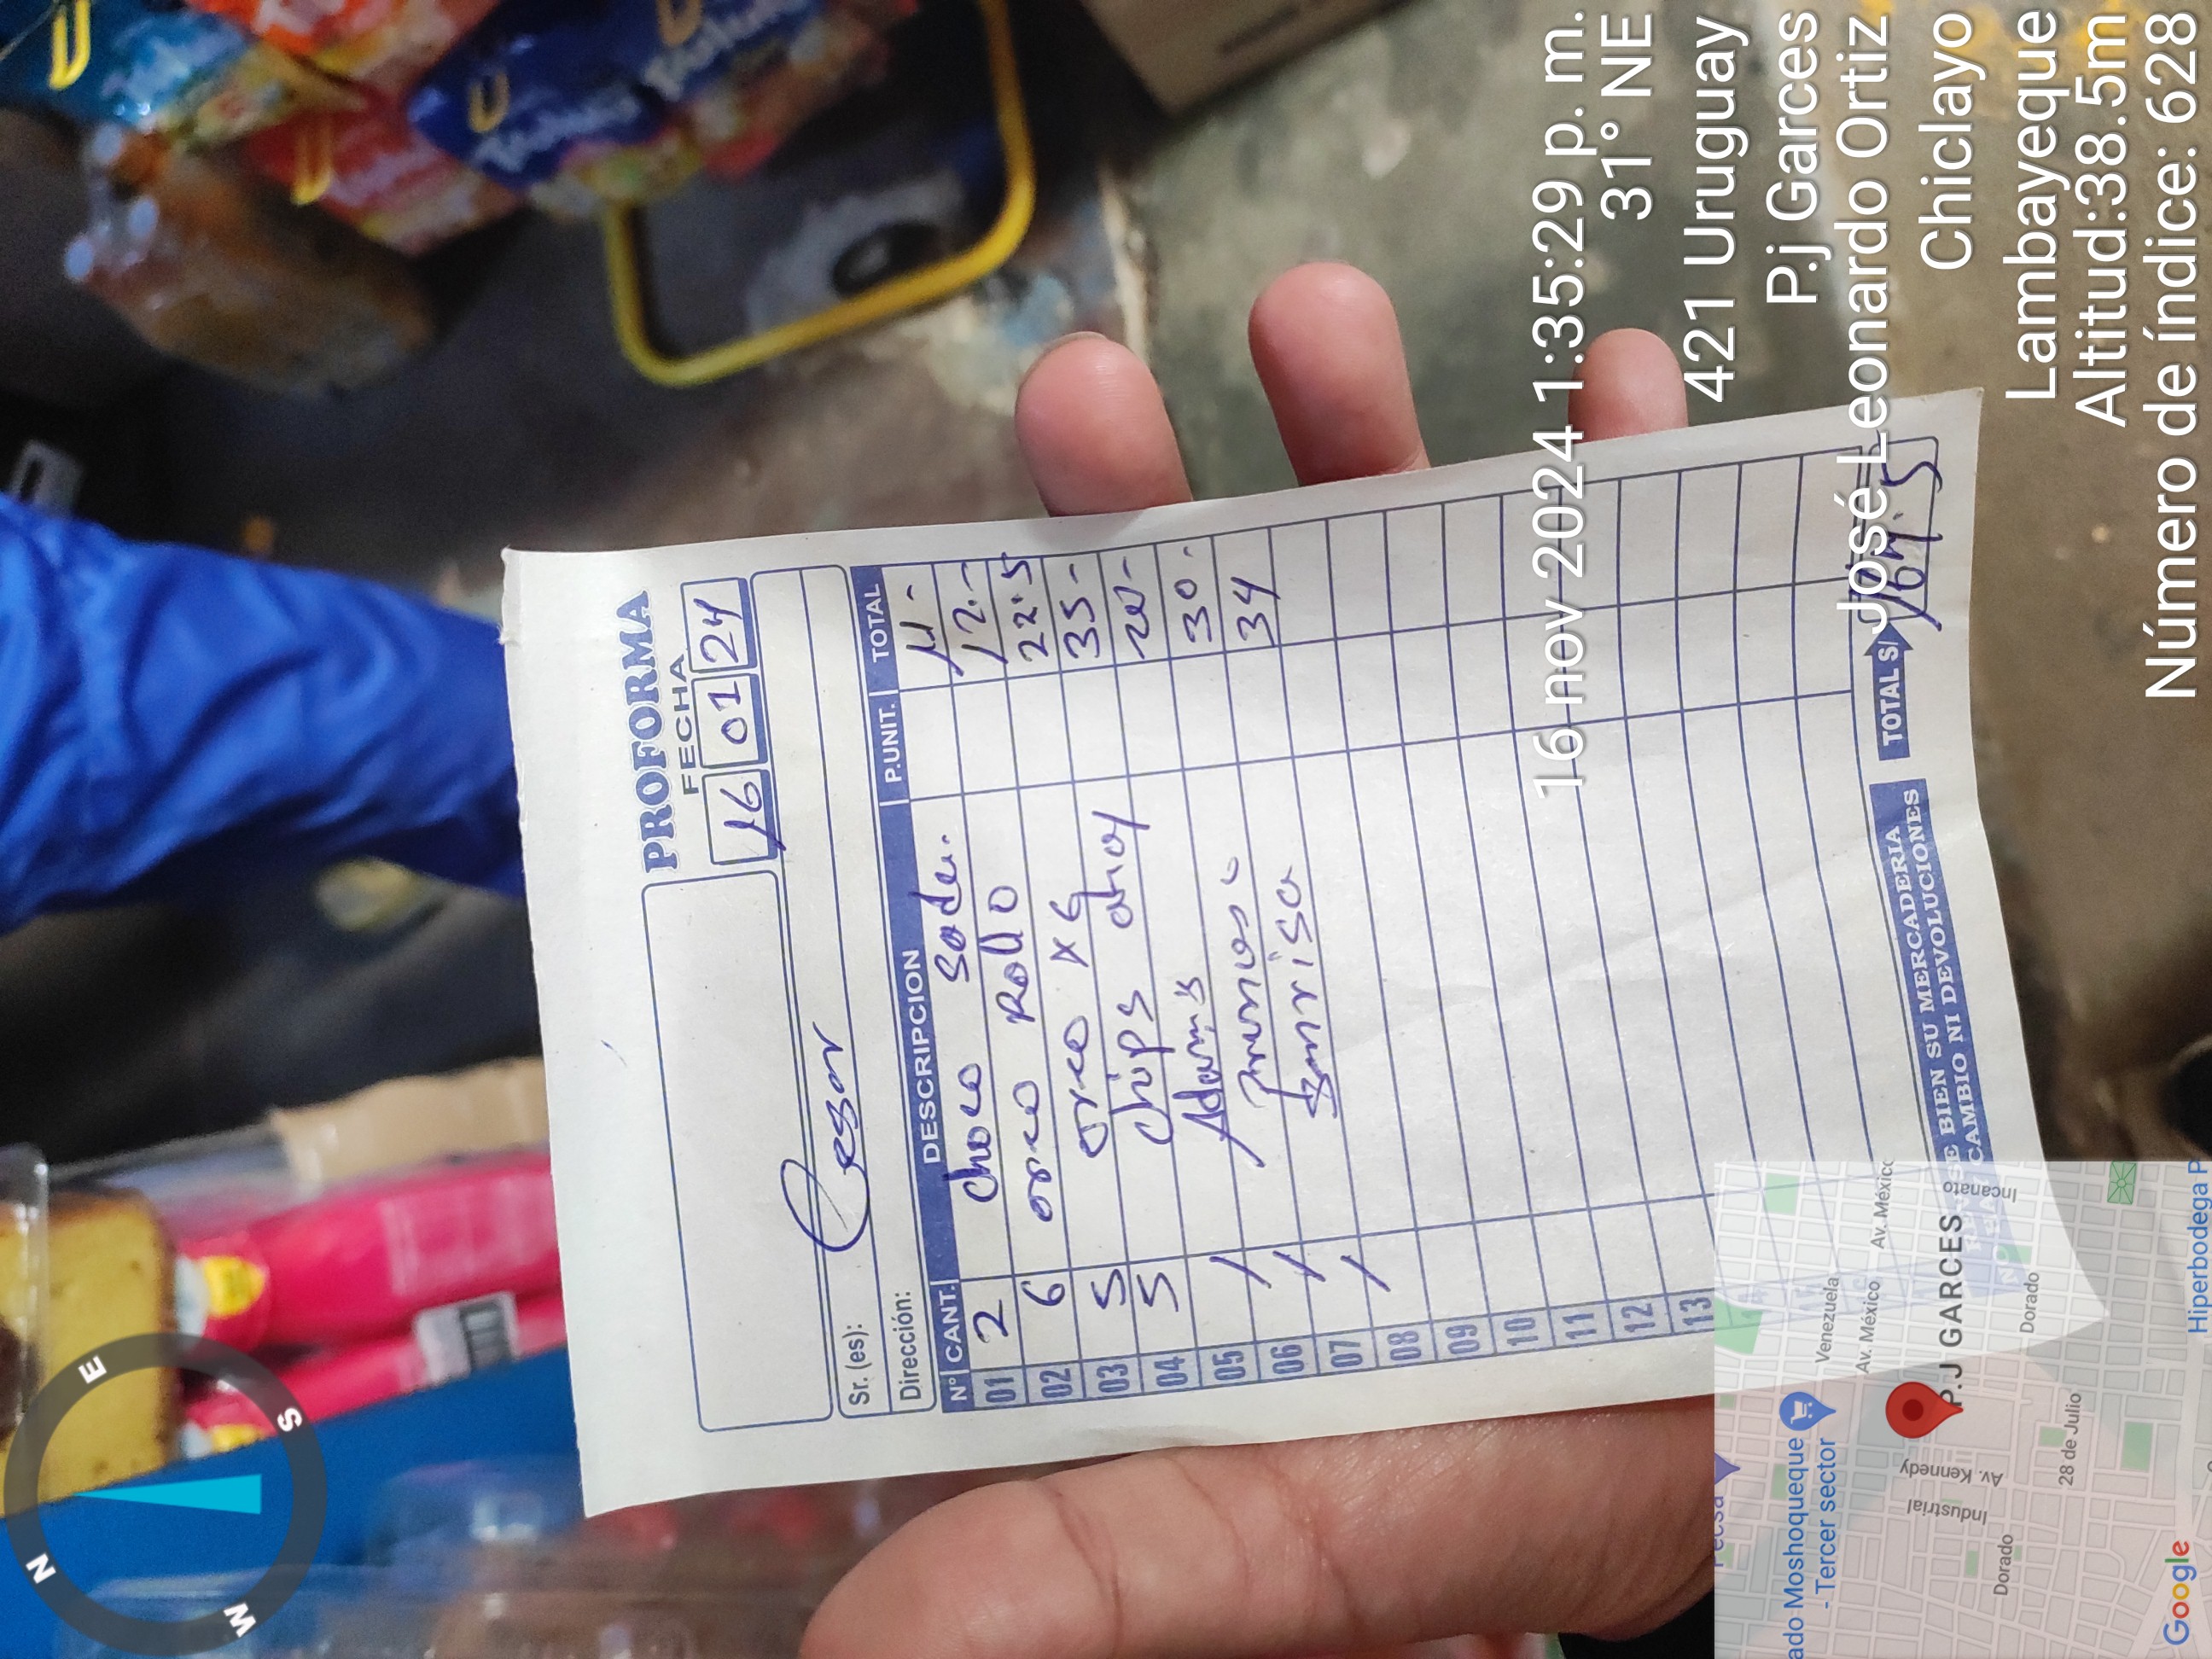 N
E
W
S
PROFORMA
FECHA
16 01 24
Sr. (es): Cesar
Dirección:
Nº CANT. DESCRIPCION P.UNIT. TOTAL
01 2 choco soda. 11-
02 6 oreo Rollo 12.-
03 5 oreo x6 22.5
04 5 chips ahoy 35-
05 1 Adams 20-
06 1 30-
07 1 Sonrisa 34
08
09
10
11
12
13
TOTAL S/ 164.5
REVISE BIEN SU MERCADERIA
NO HAY CAMBIO NI DEVOLUCIONES
16 nov 2024 1:35:29 p. m.
31° NE
421 Uruguay
P.j Garces
José Leonardo Ortiz
Chiclayo
Lambayeque
Altitud:38.5m
Número de índice: 628
Pecsa
ado Moshoqueque
- Tercer sector
Venezuela
Av. México
Av. México
Industrial
Av. Kennedy
P.J GARCES
Incanato
Dorado
Dorado
28 de Julio
Google
Hiperbodega P